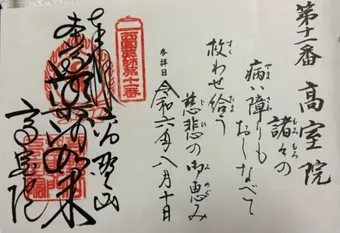 第十一番 高室院
諸々の
病い障りも
おしなべて
救わせ給う
慈悲の御恵み
参拝日 令和六年八月十日
西国薬師第十一番
高野山
本尊薬師如来
高室院